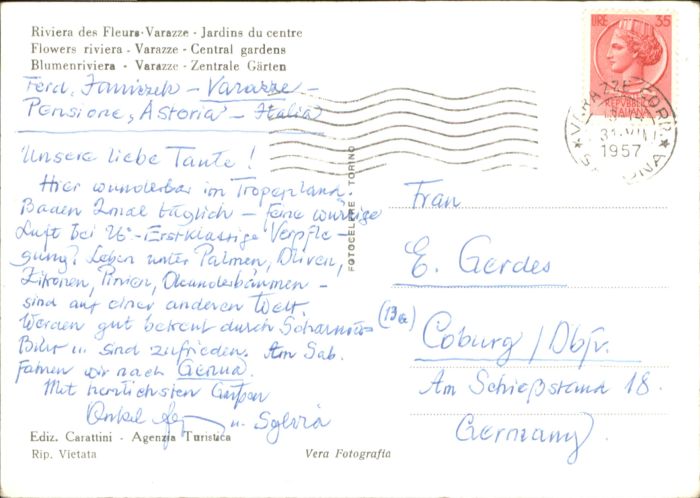 Riviera des Fleurs-Varazze - Jardins du centre
Flowers riviera - Varazze - Central gardens
Blumenriviera - Varazze - Zentrale Gärten
Ferd. – Varazze –
Pensione „Astoria – Italia
Unsere liebe Tante!
Hier wunderbar im Tropenland.
Baden 2mal täglich – feine würzige
Luft bei 26°- Erstklassige Verpfle-
gung! Leben unter Palmen, Oliven,
Zitronen, Pinien, Oleanderbäumen –
sind auf einer anderen Welt.
Werden gut betreut durch
Büro u. sind zufrieden. Am Sab.
fahren wir nach Genua.
Mit herzlichsten Grüßen
Onkel u. Sylvia
Ediz. Carattini - Agenzia Turistica
Rip. Vietata
Vera Fotografia
FOTOCELERE - TORINO
LIRE 35
REPUBBLICA
ITALIANA
VARAZZE
1957
SAVONA
Frau
E. Gerdes
(13a)
Coburg / Obfr.
Am Schießstand 18.
Germany.